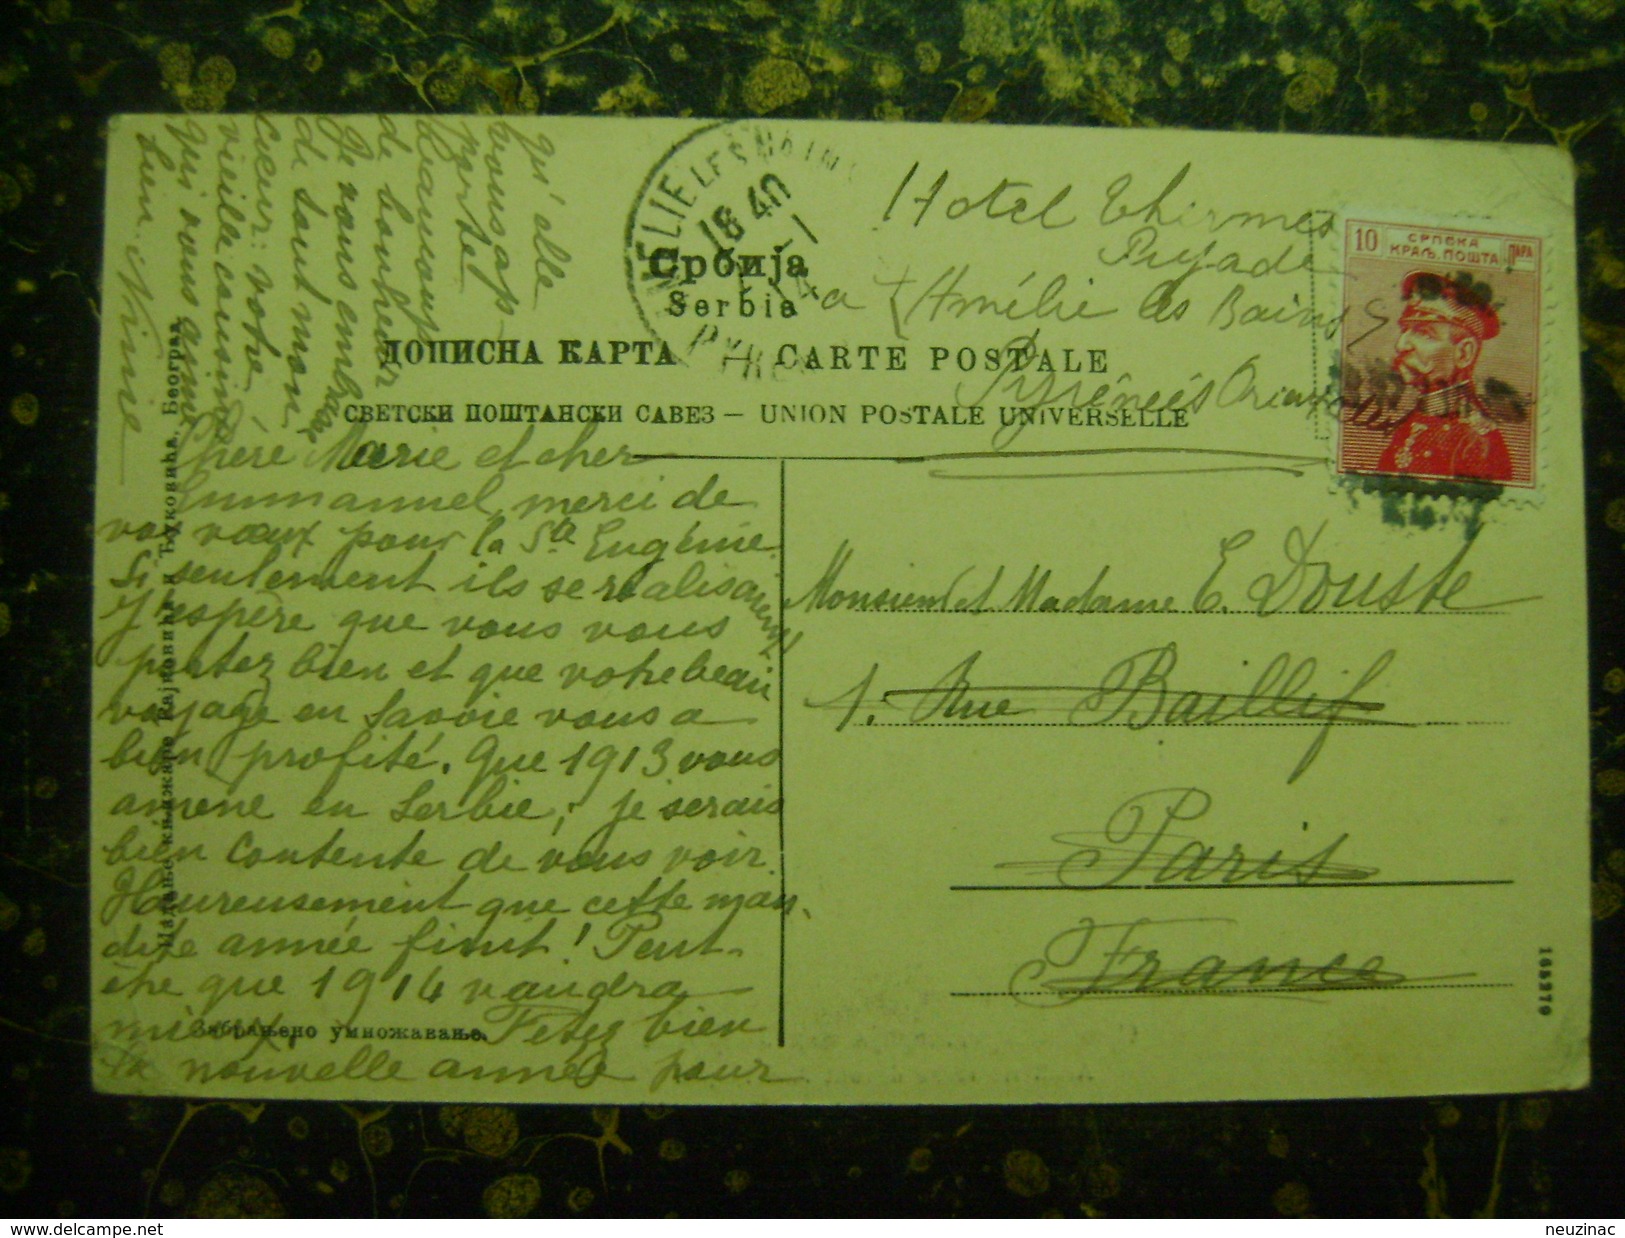 Србија
Serbia
ДОПИСНА КАРТА — CARTE POSTALE
СВЕТСКИ ПОШТАНСКИ САВЕЗ — UNION POSTALE UNIVERSELLE
18 40
10 СРПСКА ПАРА
КРАЉ. ПОШТА
Hotel Thermes
Pujade
a Amélie les Bains
Pyrénées Orientales
Monsieur et Madame E. Douste
1. Rue Baillif
Paris
France
Chère Marie et cher
Emmanuel, merci de
vos vœux pour la Ste Eugénie.
Si seulement ils se réalisaient!
J'espère que vous vous
portez bien et que votre beau
voyage en Savoie vous a
bien profité. Que 1913 vous
amène en Serbie; je serais
bien contente de vous voir.
Heureusement que cette mau-
dite année finit! Peut-
être que 1914 vaudra
mieux. Fêtez bien
la nouvelle année pour
qu'elle
vous ap-
porte
beaucoup
de bonheur
Je vous embrasse
de tout mon
cœur: votre
vieille cousine
qui vous aime
bien Nine
Забрањено умножавање.
Издање књижаре Рајковића и Ђуковића, Београд
163279
www.delcampe.net
neuzinac